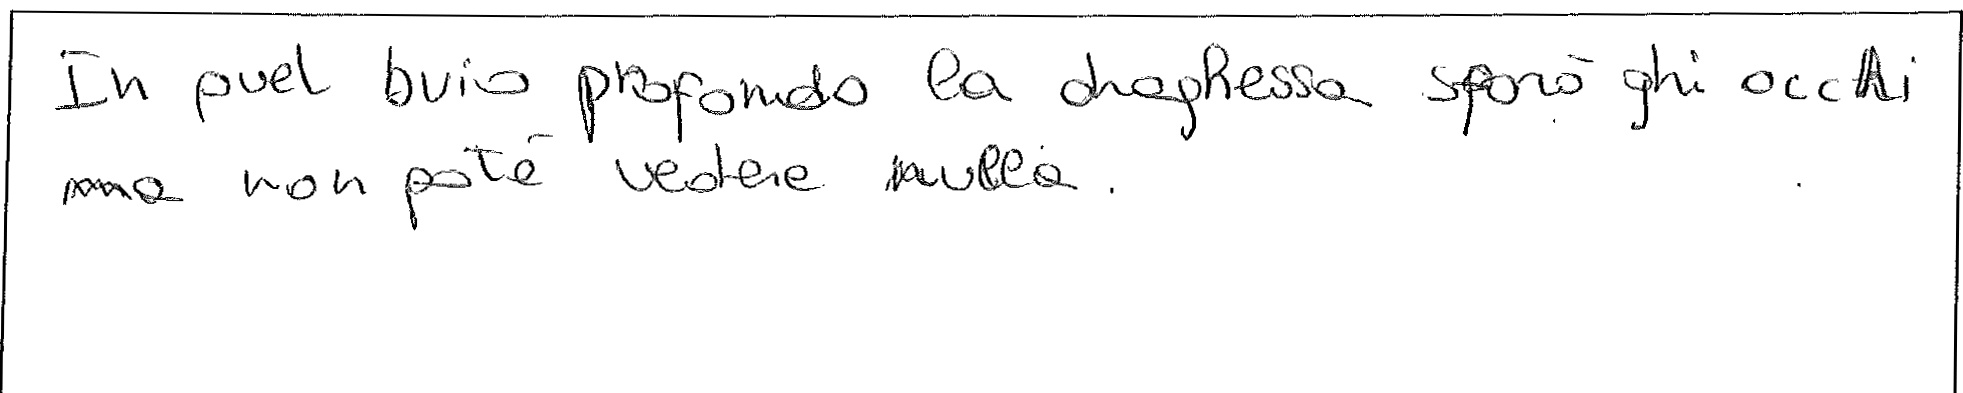 In quel buio profondo la draghessa ghi occhi
ma non poté vedere nulla.